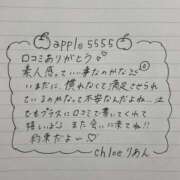 apple5555
口コミありがとう♡
素人感って…事なのかな
いまだに、慣れなくて満足させられ
ているのかなって不安なんだよね…で
もプラスに口コミで書いてくれて
嬉しいからまた会いに来てね!!
約束だよー♡
chloeりあん